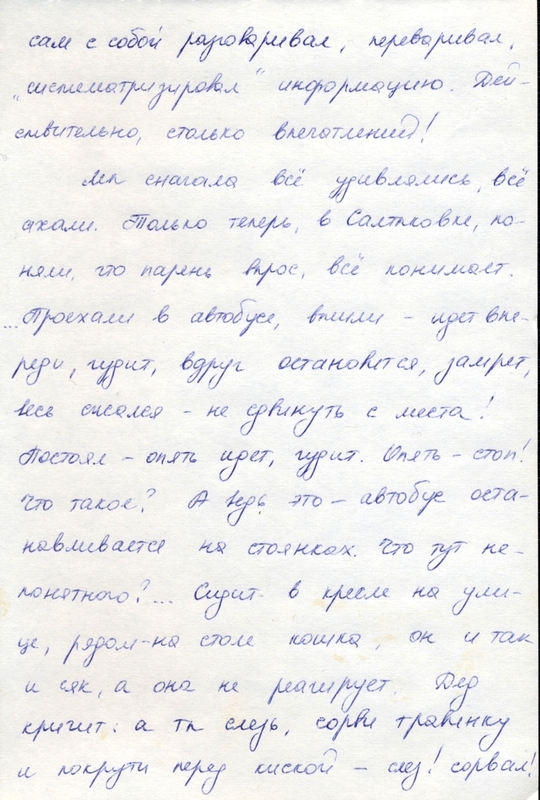 сам с собой разговаривал, переваривал,
„систематризировал" информацию. Дей-
ствительно, столько впечатлений!
Мы сначала всё удивлялись, всё
ахали. Только теперь, в Салтыковке, по-
няли, что парень вырос, всё понимает.
...Проехали в автобусе, вышли - идет впе-
реди, гудит, вдруг остановится, замрет,
весь сжался - не сдвинуть с места!
Постоял - опять идет, гудит. Опять - стоп!
Что такое? А ведь это - автобус оста-
навливается на стоянках. Что тут не-
понятного?... Сидит в кресле на ули-
це, рядом-на столе кошка, он и так
и сяк, а она не реагирует. Дед
кричит: а ты слезь, сорви травинку
и покрути перед киской - слез! сорвал!